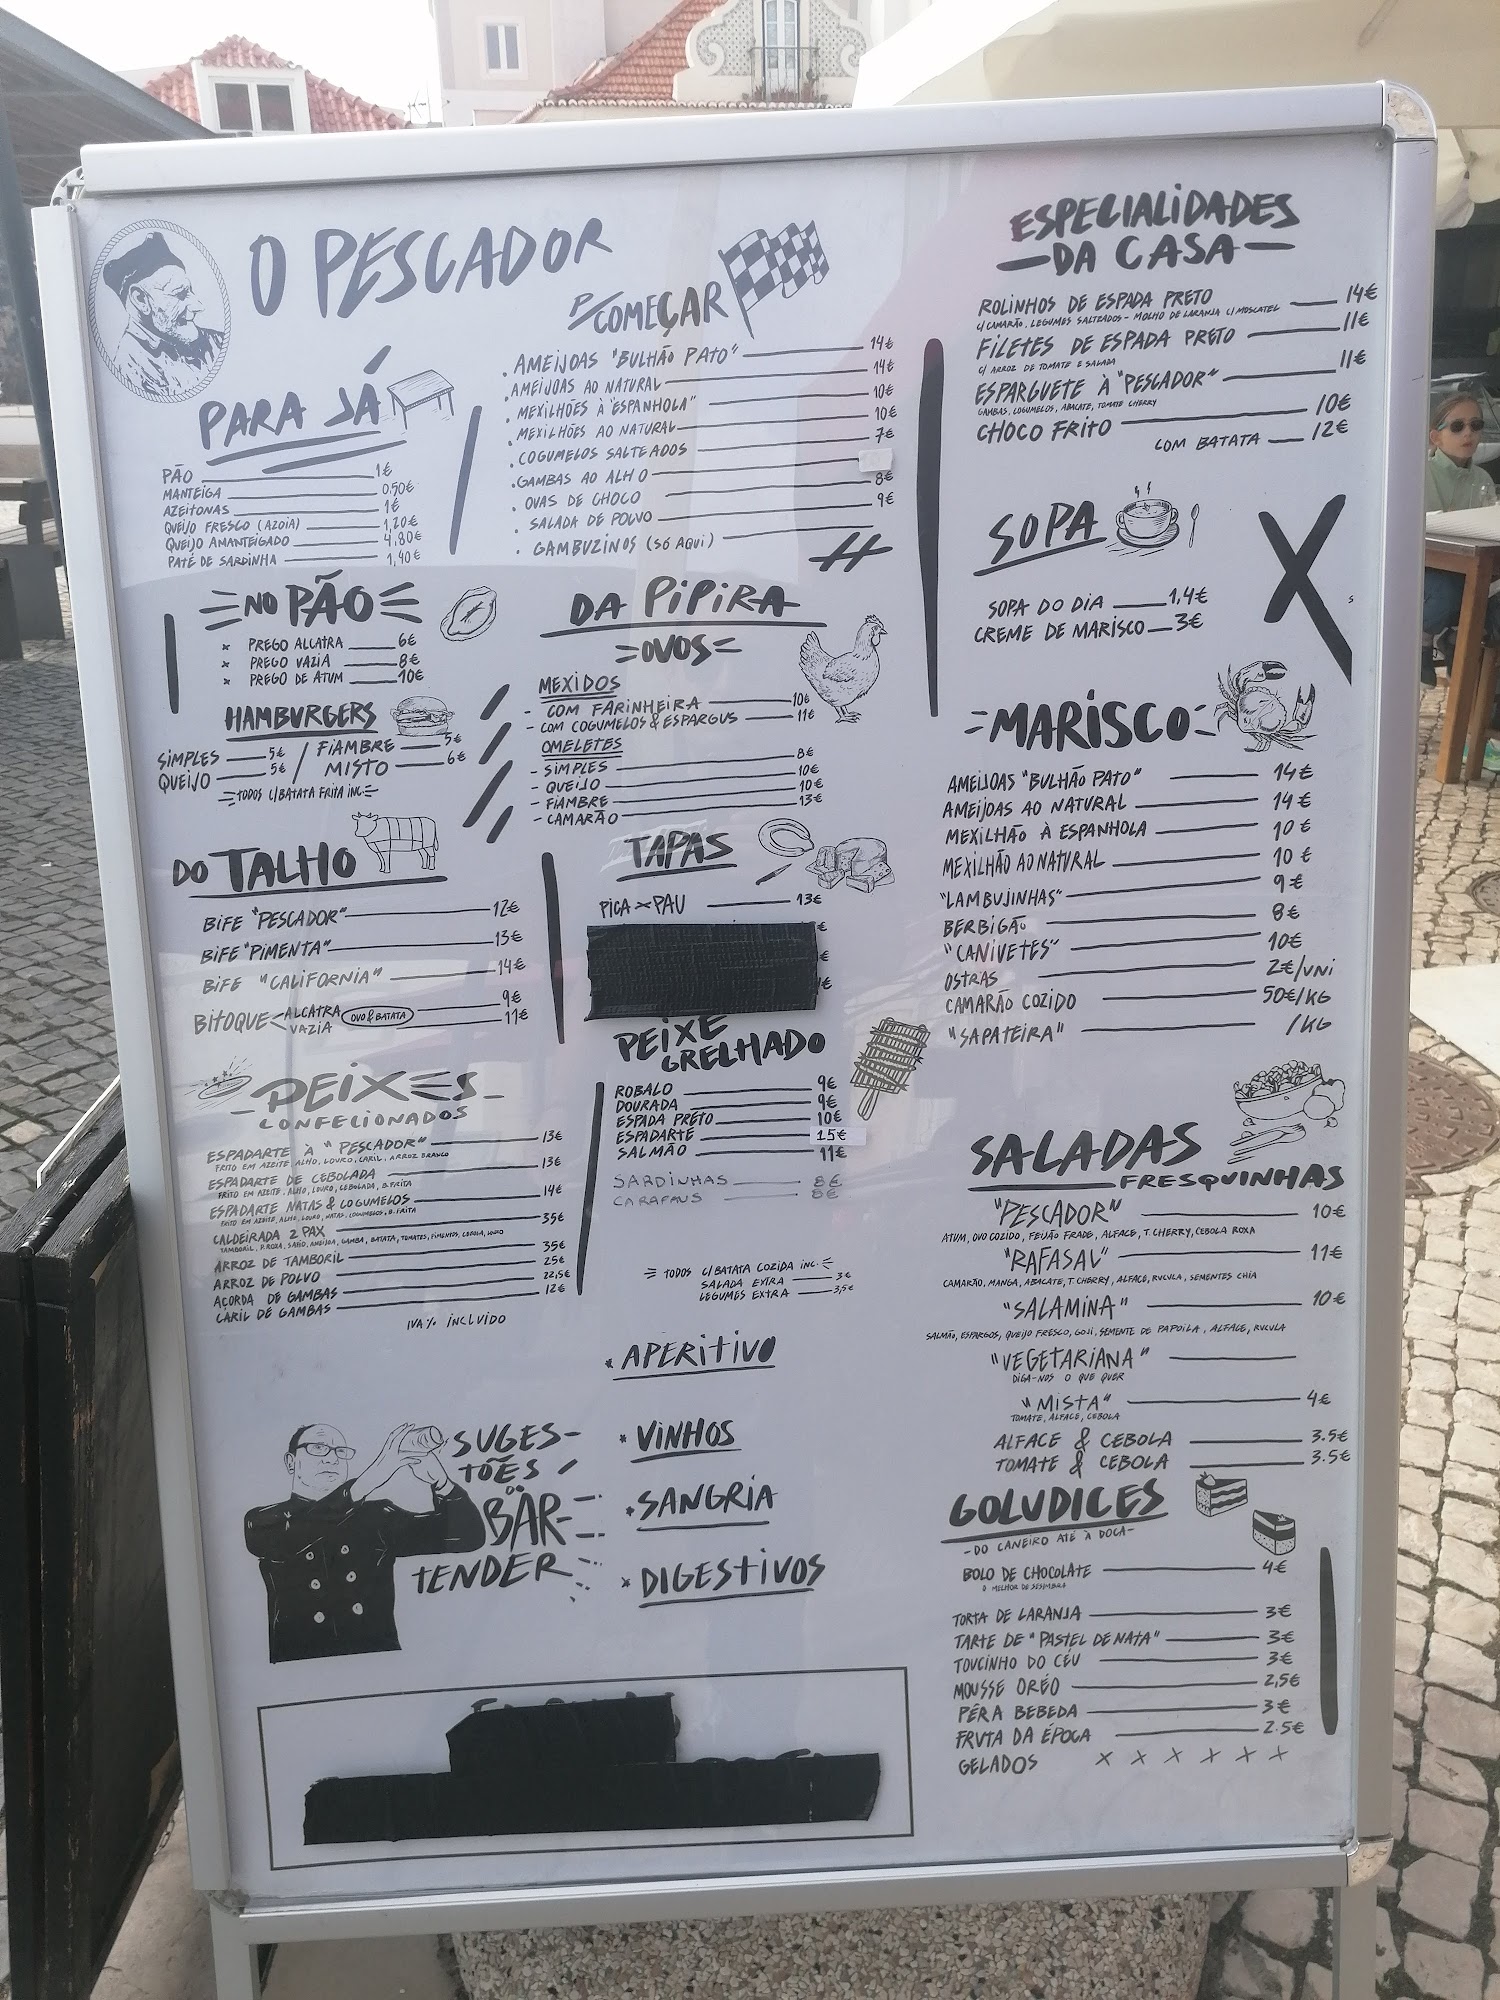 O PESCADOR
PARA JÁ
PÃO 1€
MANTEIGA 0,50€
AZEITONAS 1€
QUEIJO FRESCO (AZOIA) 1,20€
QUEIJO AMANTEIGADO 4,80€
PATÉ DE SARDINHA 1,40€
P/COMEÇAR
. AMEIJOAS "BULHÃO PATO" 14€
. AMEIJOAS AO NATURAL 14€
. MEXILHÕES À "ESPANHOLA" 10€
. MEXILHÕES AO NATURAL 10€
. COGUMELOS SALTEADOS 7€
. GAMBAS AO ALHO
. OVAS DE CHOCO 8€
. SALADA DE POLVO 9€
. GAMBUZINOS (SÓ AQUI)
NO PÃO
x PREGO ALCATRA 6€
x PREGO VAZIA 8€
x PREGO DE ATUM 10€
HAMBURGERS
SIMPLES 5€ / FIAMBRE 5€
QUEIJO 5€ / MISTO 6€
TODOS C/BATATA FRITA INC.
DA PIPIRA
=OVOS=
MEXIDOS
- COM FARINHEIRA 10€
- COM COGUMELOS & ESPARGUS 11€
OMELETES
- SIMPLES 8€
- QUEIJO 10€
- FIAMBRE 10€
- CAMARÃO 13€
DO TALHO
BIFE "PESCADOR" 12€
BIFE "PIMENTA" 13€
BIFE "CALIFORNIA" 14€
BITOQUE ALCATRA 9€
VAZIA 11€
OVO & BATATA
TAPAS
PICA x PAU 13€
€
€
€
PEIXES
CONFECIONADOS
ESPADARTE À "PESCADOR" 13€
FRITO EM AZEITE, ALHO, LOURO, CARIL, ARROZ BRANCO
ESPADARTE DE CEBOLADA 13€
FRITO EM AZEITE, ALHO, LOURO, CEBOLADA, B.FRITA
ESPADARTE NATAS & COGUMELOS 14€
FRITO EM AZEITE, ALHO, LOURO, NATAS, COGUMELOS, B.FRITA
CALDEIRADA 2 PAX 35€
TAMBORIL, P.ROXA, SAFIO, AMEIJOA, GAMBA, BATATA, TOMATES, PIMENTOS, CEBOLA, LOURO
ARROZ DE TAMBORIL 35€
ARROZ DE POLVO 25€
AÇORDA DE GAMBAS 22,5€
CARIL DE GAMBAS 12€
IVA% INCLUIDO
PEIXE
GRELHADO
ROBALO 9€
DOURADA 9€
ESPADA PRETO 10€
ESPADARTE 15€
SALMÃO 11€
SARDINHAS 8€
CARAPAUS 8€
TODOS C/BATATA COZIDA INC.
SALADA EXTRA 3€
LEGUMES EXTRA 3,5€
SUGES-
TÕES
DO
BAR-
TENDER
* APERITIVO
* VINHOS
* SANGRIA
* DIGESTIVOS
ESPECIALIDADES
DA CASA
ROLINHOS DE ESPADA PRETO 14€
C/CAMARÃO, LEGUMES SALTEADOS - MOLHO DE LARANJA C/MOSCATEL
FILETES DE ESPADA PRETO 11€
C/ ARROZ DE TOMATE E SALADA
ESPARGUETE À "PESCADOR" 11€
GAMBAS, COGUMELOS, ABACATE, TOMATE CHERRY
CHOCO FRITO 10€
COM BATATA 12€
SOPA
SOPA DO DIA 1,4€
CREME DE MARISCO 3€
MARISCO
AMEIJOAS "BULHÃO PATO" 14€
AMEIJOAS AO NATURAL 14€
MEXILHÃO À ESPANHOLA 10€
MEXILHÃO AO NATURAL 10€
"LAMBUJINHAS" 9€
BERBIGÃO 8€
"CANIVETES" 10€
OSTRAS 2€/UNI
CAMARÃO COZIDO 50€/KG
"SAPATEIRA" /KG
SALADAS
FRESQUINHAS
"PESCADOR" 10€
ATUM, OVO COZIDO, FEIJÃO FRADE, ALFACE, T.CHERRY, CEBOLA ROXA
"RAFASAL" 11€
CAMARÃO, MANGA, ABACATE, T.CHERRY, ALFACE, RUCULA, SEMENTES CHIA
"SALAMINA" 10€
SALMÃO, ESPARGOS, QUEIJO FRESCO, GOJI, SEMENTE DE PAPOILA, ALFACE, RUCULA
"VEGETARIANA"
DIGA-NOS O QUE QUER
"MISTA" 4€
TOMATE, ALFACE, CEBOLA
ALFACE & CEBOLA 3.5€
TOMATE & CEBOLA 3.5€
GOLUDICES
-DO CANEIRO ATÉ À DOCA-
BOLO DE CHOCOLATE 4€
O MELHOR DE SESIMBRA
TORTA DE LARANJA 3€
TARTE DE "PASTEL DE NATA" 3€
TOUCINHO DO CÉU 3€
MOUSSE ORÉO 2,5€
PÊRA BEBEDA 3€
FRUTA DA ÉPOCA 2.5€
GELADOS x x x x x x